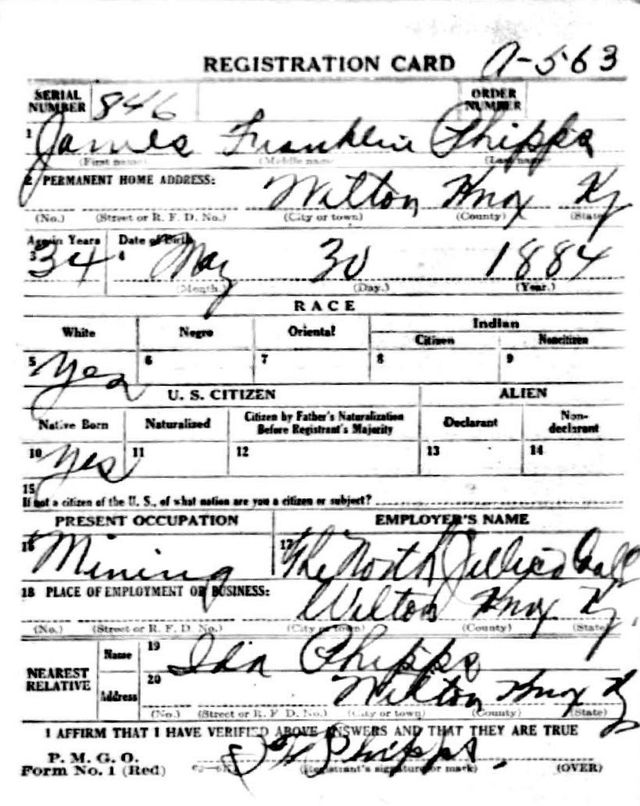 REGISTRATION CARD A-563
SERIAL NUMBER 846 ORDER NUMBER
1 James Franklin Phipps
(First name) (Middle name) (Last name)
2 PERMANENT HOME ADDRESS: Wilton Knox Ky
(No.) (Street or R. F. D. No.) (City or town) (County) (State)
Age in Years Date of Birth
3 34 4 May 30 1884
(Month.) (Day.) (Year.)
RACE
White Negro Oriental Indian
Citizen Noncitizen
5 Yes 6 7 8 9
U. S. CITIZEN ALIEN
Native Born Naturalized Citizen by Father's Naturalization Before Registrant's Majority Declarant Non-declarant
10 Yes 11 12 13 14
15
If not a citizen of the U. S., of what nation are you a citizen or subject?
PRESENT OCCUPATION EMPLOYER'S NAME
16 Mining 17 The North Jellico Coal
18 PLACE OF EMPLOYMENT OR BUSINESS: Wilton Knox Ky.
(No.) (Street or R. F. D. No.) (City or town) (County) (State)
NEAREST RELATIVE Name 19 Ida Phipps
Address 20 Wilton Knox Ky
(No.) (Street or R. F. D. No.) (City or town) (County) (State)
I AFFIRM THAT I HAVE VERIFIED ABOVE ANSWERS AND THAT THEY ARE TRUE
P. M. G. O.
Form No. 1 (Red) Phipps. (Registrant's signature or mark) (OVER)